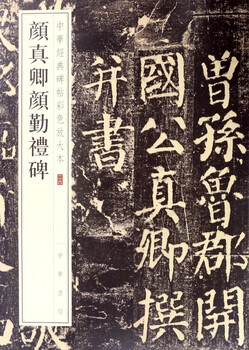 中華經典碑帖彩色放大本
顏真卿顏勤禮碑
中華書局
曾孫魯郡開
國公真卿撰
并書